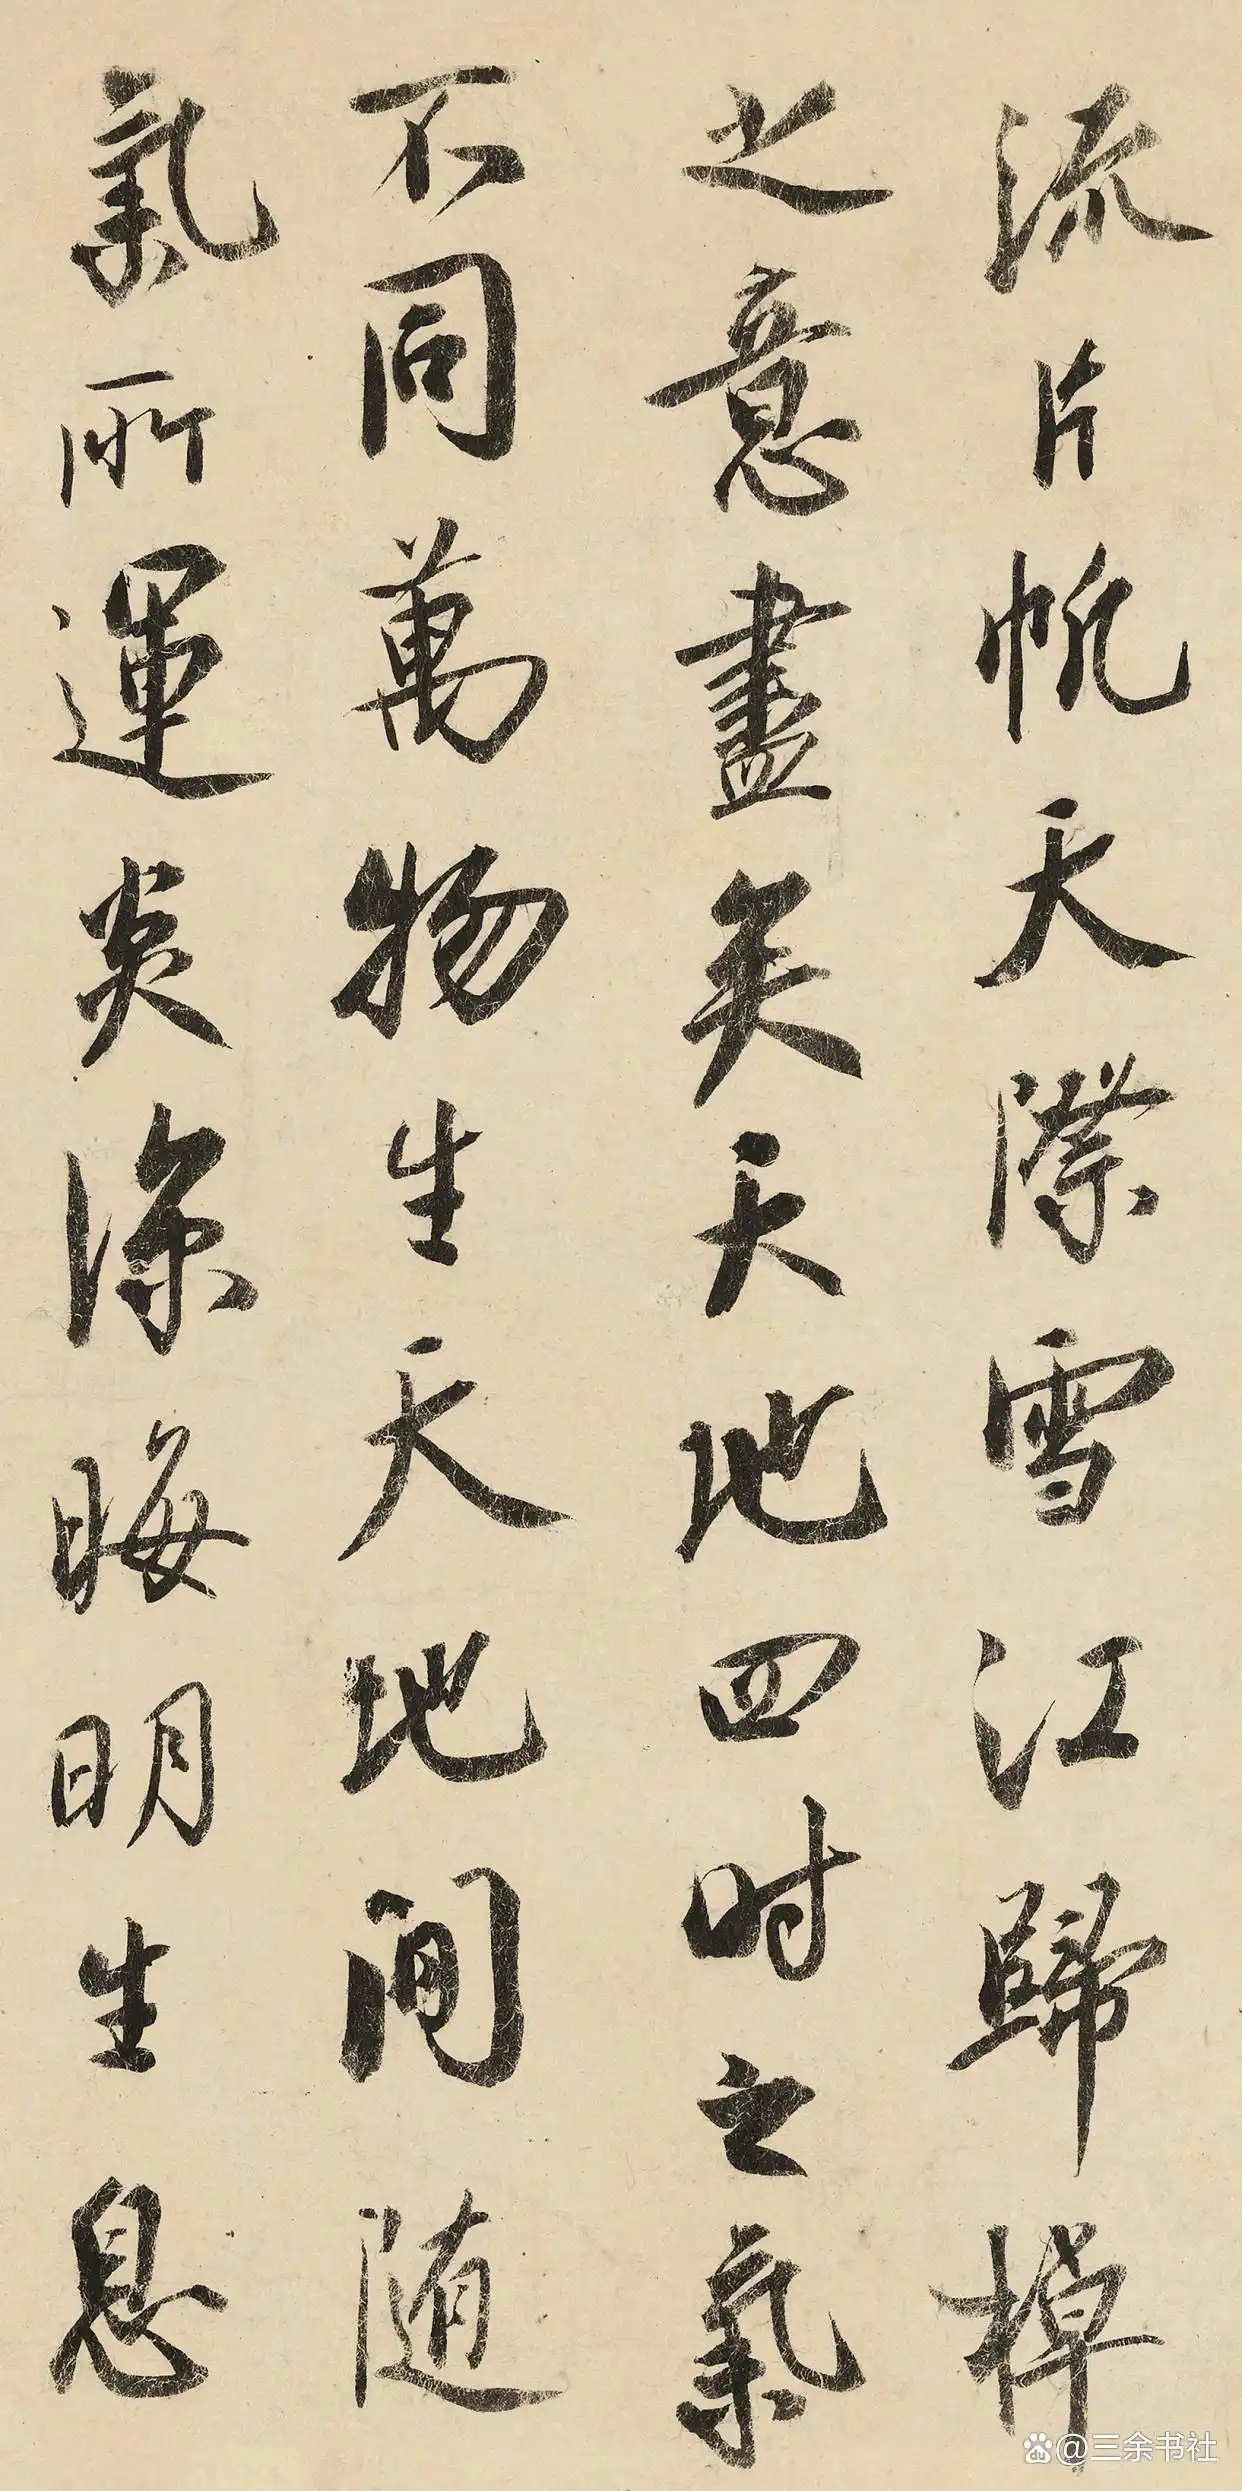 流片帆天際雪江歸棹
之意盡矣天地四时之氣
不同萬物生天地间随
氣所運炎涼晦明生息
@三余书社